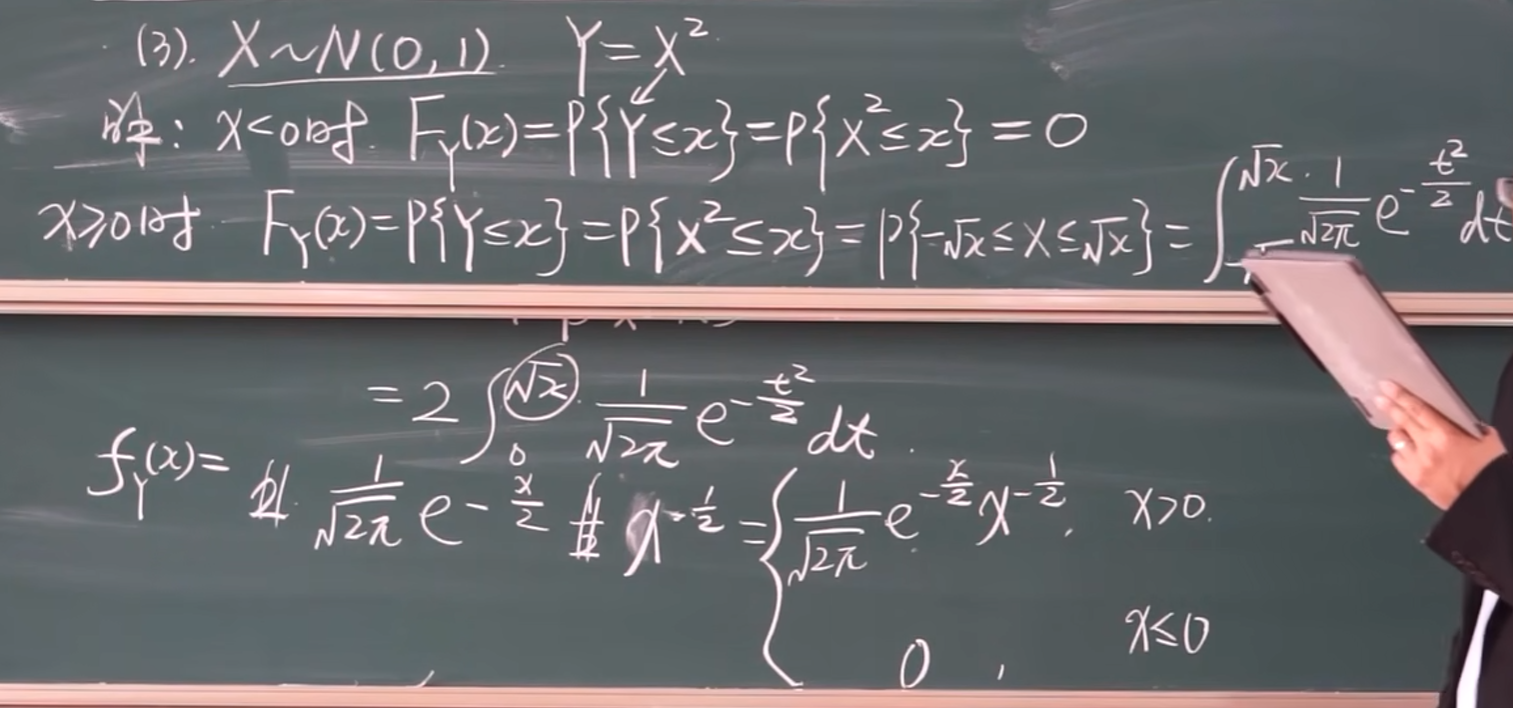 (3). X~N(0,1) Y=X²
解: x<0时. F_Y(x)=P{Y≤x}=P{X²≤x}=0
x≥0时 F_Y(x)=P{Y≤x}=P{X²≤x}=P{-√x≤X≤√x}=∫^{√x} 1/√2π e^{-t²/2} dt
=2∫_0^{√x} 1/√2π e^{-t²/2} dt.
f_Y(x)= 2· 1/√2π e^{-x/2} 1/2 x^{-1/2} = { 1/√2π e^{-x/2} x^{-1/2}, x>0.
0, x≤0